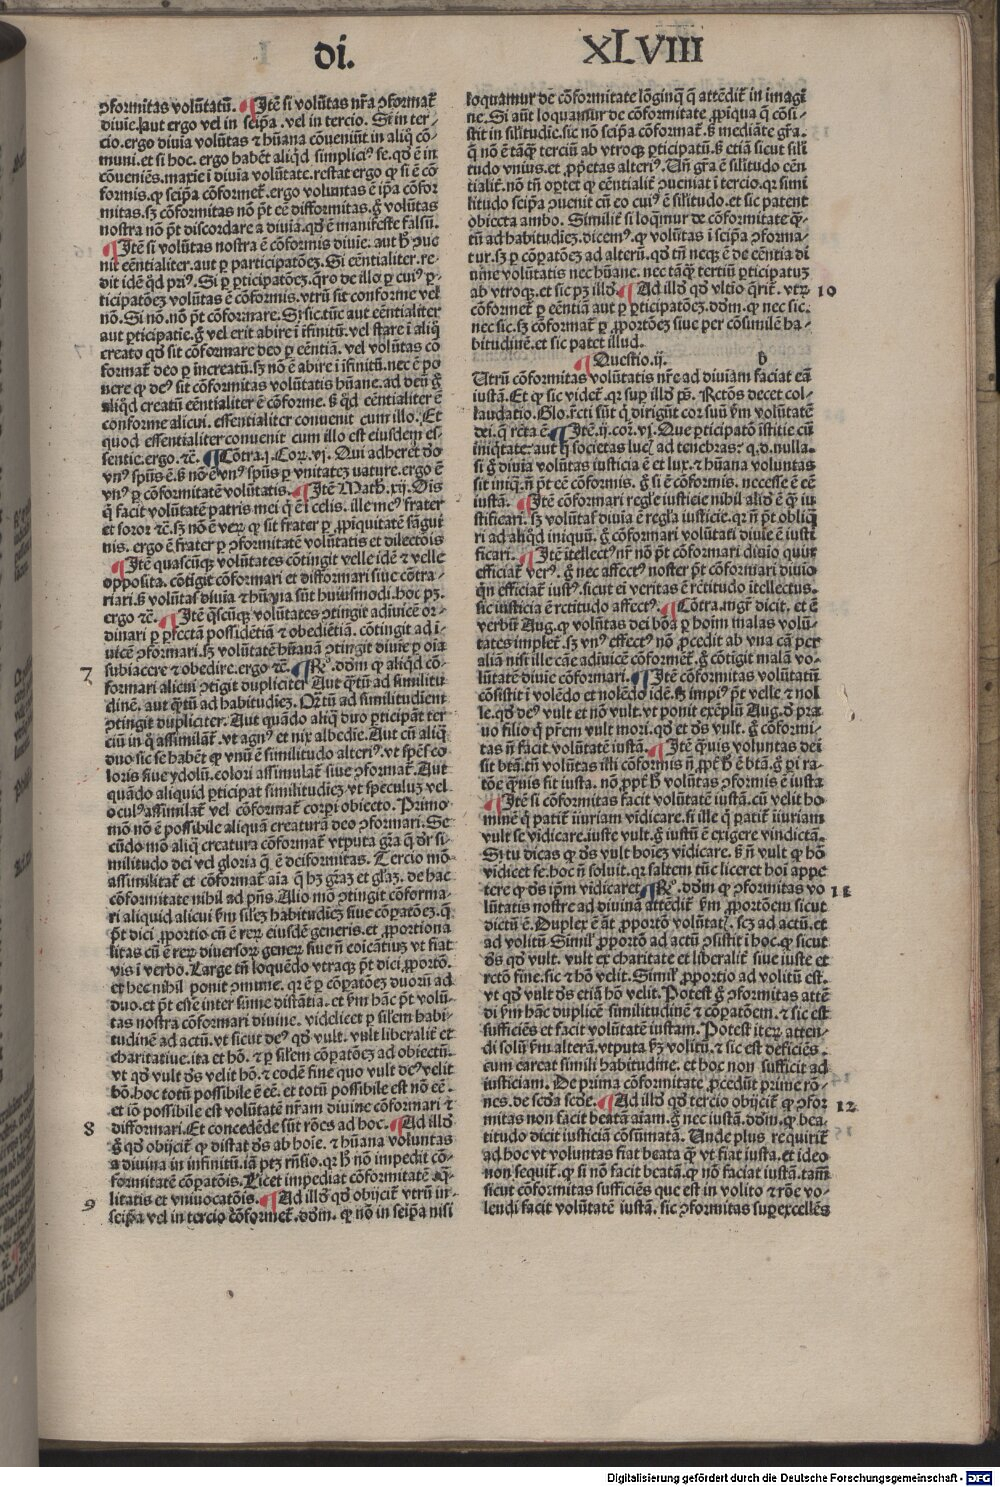 di.
XLVIII
ꝯformitas volūtatū. ¶Itē si volūtas nr̄a ꝯformat᷑
diuie. aut ergo vel in seip̄a. vel in tercio. Si in ter-
cio. ergo diuia volūtas ⁊ hūana cōueniūt in aliq̄ cō-
muni. et si hoc. ergo habēt aliqd̄ simplici⁹ se. qd̄ ē in
cōueniēs. maxīe ī diuīa volūtate. restat ergo ꝙ si ē cō
formis. ꝙ seip̄a cōformet᷑. ergo voluntas ē ip̄a cōfor
mitas. sꝫ cōformitas nō pōt eē difformitas. ḡ volūtas
nostra nō pōt discordare a diuīa. qd̄ ē manifeste falsū.
¶Itē si volūtas nostra ē cōformis diuie. aut h̄ ꝯue
nit eēntialiter. aut ꝑ participatōeꝫ. Si cēntialiter. re-
dit idē qd̄ pri⁹. Si ꝑ ꝑticipatōeꝫ. q̄ro de illo ꝑ cui⁹ ꝑ-
ticipatōeꝫ volūtas ē cōformis. vtrū sit conforme vel
nō. Si nō. nō pōt cōformare. Si sic. tūc aut eēntialiter
aut ꝑticipatie. ḡ vel erit abire ī ifinitū. vel stare ī aliq̄
creato qd̄ sit cōformare deo ꝑ eēntiā. vel volūtas cō
format᷑ deo ꝑ increatū. sꝫ nō ē abire ī ifinitū. nec ē po
nere ꝙ de⁹ sit cōformitas volūtatis hūane. ad deū ḡ
aliqd̄ creatū eēntialiter ē cōforme. sꝫ qd̄ cēntialiter ē
conforme alicui. essentialiter conuenit cum illo. Et
quod essentialiter conuenit cum illo est eiusdem es-
sentie. ergo. ⁊c̄. ¶Cōtra. j. Cor. vj. Qui adheret dō
vn⁹ spūs ē. sꝫ nō ē vn⁹ spūs ꝑ vnitatez nature. ergo ē
vn⁹ ꝑ cōformitatē volūtatis. ¶Itē Math. xij. Oīs
q̄ facit volūtatē patris mei q̄ ē ī celis. ille me⁹ frater
et soror ⁊c̄. sꝫ nō ē veꝝ ꝙ sit frater ꝑ ꝓpiquitatē sāgui
nis. ergo ē frater ꝑ ꝯformitatē volūtatis et dilectois
¶Itē quascūqꝫ volūtates cōtingit velle idē ⁊ velle
opposita. cōtīgit cōformari et difformari siue cōtra-
riari. sꝫ volūtas diuīa ⁊ hūana sūt huiusmodi. hoc pꝫ.
ergo ⁊c̄. ¶Itē q̄scūqꝫ volūtates ꝯtingit adiuicē or-
dinari ꝑ p̄fectā possidētiā ⁊ obediētiā. cōtingit ad ī-
uicē ꝯformari. sꝫ volūtatē hūanā ꝯtingit diuie ꝑ oīa
7 subiacere ⁊ obedire. ergo ⁊c̄. ¶Rº. dōm̄ ꝙ aliqd̄ cō-
formari alicui ꝯtigit dupliciter Aut q̄tū ad similitu
dinē. aut q̄tū ad habitudiez. Q̄tū ad similitudiem
ꝯtingit dupliciter. Aut quādo aliq̄ duo ꝑticipāt ter
ciū in q̄ assimilāt᷑. vt agn⁹ et nix albedīe. Aut cū aliq̄
duo sic se habēt ꝙ vnū ē similitudo alteri⁹. vt spēs co
loris siue ydolū. colori assimulat᷑ siue ꝯformat᷑. Aut
quādo aliquid ꝑticipat similitudiez vt speculuꝫ vel
ocul⁹ assimilat᷑ vel cōformat᷑ corꝑi obiecto. Primo
mō nō ē possibile aliquā creaturā deo ꝯformari. Se
cūdo mō aliq̄ creatura cōformat᷑ vtputa gr̄a q̄ dr̄ si
militudo dei vel gloria q̄ ē deiformitas. Tercio mō
assimilitat᷑ et cōformat᷑ aīa q̄ hꝫ gr̄az et gl̄az. de hac
cōformitate nihil ad pn̄s. Alio mō ꝯtingit cōforma-
ri aliquid alicui ẜm silez habitudiez siue cōꝑatōez. q̄
pōt dici ꝓportio cū ē reꝝ eiusdē generis. et ꝓportiona
litas cū ē reꝝ diuersoꝝ geneꝝ siue nō coicātiuꝫ vt fiat
vis ī verbo. Large tn̄ loquēdo vtraqꝫ pōt dici ꝓportō.
et hec nihil ponit ꝯmune. qr ē ꝑ cōꝑatōez duoꝝ ad
duo. et pōt esse inter sūme distātia. et ẜm hāc pōt volū-
tas nostra cōformari diuine. videlicet ꝑ silem habi-
tudinē ad actū. vt sicut de⁹ qd̄ vult. vult liberalit᷑ et
charitatiue. ita et hō. ⁊ ꝑ silem cōꝑatōez ad obiectū.
vt qd̄ vult ds̄ velit hō. ⁊ eodē fine quo vult de⁹ velit
hō. hoc totū possibile ē eē. et totū possibile est nō eē.
et iō possibile est volūtatē nr̄am diuine cōformari ⁊
8 difformari. Et concedēde sūt rōes ad hoc. ¶Ad illd̄
ḡ qd̄ obijcit᷑ ꝙ distat ds̄ ab hoīe. ⁊ hūana voluntas
a diuina in infinitū. iā ptꝫ rn̄sio. qr h̄ nō impedit cō-
formitatē cōꝑatōis. Licet impediat cōformitatē eq̄-
9 litatis et vniuocatōis. ¶Ad illd̄ qd̄ obijcit᷑ vtrū in
seip̄a vel in tercio cōformet᷑. dōm̄. ꝙ nō in seip̄a nisi
loquamur de cōformitate lōginq̄ q̄ attēdit᷑ in imagi
ne. Si aūt loquamur de cōformitate ꝓpiqua q̄ cōsi-
stit in silitudīe. sic nō seip̄a cōformat᷑. sꝫ mediāte gr̄a.
q̄ nō ē tāq̄ terciū ab vtroqꝫ ꝑticipatū. sꝫ etiā sicut sili
tudo vnius. et ꝓp̄etas alteri⁹. Un̄ gr̄a ē silitudo eēn
tialit᷑. nō tn̄ oꝑtet ꝙ eēntialit᷑ ꝯueniat ī tercio. qr simi
litudo seip̄a ꝯuenit cū eo cui⁹ ē silitudo. et sic patent
obiecta ambo. Similit᷑ si loq̄mur de cōformitate q̄-
tū ad habitudiez. dicem⁹. ꝙ volūtas ī seip̄a ꝯforma-
tur. sꝫ ꝑ cōꝑatōez ad alterū. qd̄ tn̄ neqꝫ ē de eēntia di
uine volūtatis nec hūane. nec tāq̄ tertiū ꝑticipatuꝫ
ab vtroqꝫ. et sic pꝫ illd̄. ¶Ad illd̄ qd̄ vltīo q̄rit᷑. vtꝝ 10
cōformet᷑ ꝑ eēntiā aut ꝑ ꝑticipatōez. dōm̄. ꝙ nec sic.
nec sic. sꝫ cōformat᷑ ꝑ ꝓportōez siue per cōsimilē ha-
bitudinē. et sic patet illud.
¶Questio. ij. b
Utrū cōformitas volūtatis nr̄e ad diuiām faciat eā
iustā. Et ꝙ sic videt᷑. qr suꝑ illd̄ p̄s. Rectos decet col-
laudatio. Glo. recti sūt q̄ dirigūt cor suū ẜm volūtatē
dei. q̄ recta ē. ¶Itē. ij. cor. vj. Que ꝑticipatō iusticie cū
iniqtate: aut q̄ societas luci ad tenebras: q. d. nulla.
si ḡ diuīa volūtas iusticia ē et lux. ⁊ hūana voluntas
sit iniq̄. nō pōt eē cōformis. ḡ si ē cōformis. necesse ē eē
iustā. ¶Itē cōformari regl̄e iusticie nihil aliud ē q̄ iu
stificari. sꝫ volūtas diuīa ē regl̄a iusticie. qr nō pōt obliq̄
ri ad aliqd̄ iniquū. ḡ cōformari volūtati diuie ē iusti
ficari. ¶Itē itellect⁹ nr̄ nō pōt conformari diuio quin
efficiat᷑ ver⁹. ḡ nec affect⁹ noster pōt cōformari diuio
qn̄ efficiat᷑ iust⁹. sicut ei veritas ē rectitudo itellectus.
sic iusticia ē rectitudo affect⁹. ¶Cōtra. mgr̄ dicit. et ē
verbū Aug. ꝙ volūtas dei bōa ꝑ hoīm malas volū-
tates implet᷑. sꝫ vn⁹ effect⁹ nō ꝓcedit ab vna cā per
aliā nisi ille cāe adiuicē cōformet᷑. ḡ cōtigit malā vo-
lūtatē diuie cōformari. ¶Itē cōformitas volūtatū
cōsistit ī volēdo et nolēdo idē. sꝫ impi⁹ pōt velle ⁊ nol
le. qd̄ de⁹ vult et nō vult. vt ponit exēplū Aug. d̄ pra
uo filio q̄ pr̄em vult mori. qd̄ et ds̄ vult. ḡ cōformi-
tas nō facit volūtatē iustā. ¶Itē q̄uis voluntas dei
sit btā. tn̄ volūtas illi cōformis nō ꝓpt᷑ h̄ ē btā. ḡ pi ra-
tōe q̄uis sit iusta. nō ꝓpt᷑ h̄ volūtas ꝯformis ē iusta
¶Itē si cōformitas facit volūtatē iustā. cū velit ho-
minē q̄ patit᷑ iiuriam vidicare. si ille q̄ patit᷑ iiuriam
vult se vidicare. iuste vult. ḡ iustū ē exigere vindictā.
Si tu dicas ꝙ ds̄ vult hoīez vidicare. sꝫ nō vult ꝙ hō
vidicet se. hoc nō soluit. qr saltem tūc liceret hoī appe
tere ꝙ ds̄ ip̄m vidicaret. ¶Rº. dōm̄ ꝙ ꝯformitas vo 11
lūtatis nostre ad diuinā attēdit᷑ ẜm ꝓportōem sicut
dictū ē. Duplex ē āt ꝓportō volūtat᷑. scꝫ ad actū. et
ad volitū Simil᷑ ꝓportō ad actū ꝯsistit ī hoc. ꝙ sicut
ds̄ qd̄ vult. vult ex charitate et liberalit᷑ siue iuste et
recto fine. sic ⁊ hō velit. Simil᷑ ꝓportio ad volitū est.
vt qd̄ vult ds̄ etiā hō velit. Potest ḡ ꝯformitas attē
di ẜm hāc duplicē similitudinē ⁊ cōꝑatōem. ⁊ sic est
sufficiēs et facit volūtatē iustam. Potest iteꝝ atten-
di solū ẜm alterā. vtputa ẜꝫ volitū. ⁊ sic est deficiēs.
cum careat simili habitudine. et hoc non sufficit ad
iusticiam. De prima cōformitate ꝓcedūt prime rō-
nes. de scd̄a scd̄e. ¶Ad illd̄ qd̄ tercio obijcit᷑ ꝙ ꝯfor 12
mitas non facit beatā aīam. ḡ nec iustā. dōm̄. ꝙ bea-
titudo dicit iusticiā cōsūmatā. Unde plus requirit᷑
ad hoc vt voluntas fiat beata q̄ vt fiat iusta. et ideo
non sequit᷑. ꝙ si nō facit beatā. ꝙ nō faciat iustā. tam̄
sicut cōformitas sufficiēs que est in volito ⁊ rōe vo-
lendi facit volūtatē iustā. sic ꝯformitas suꝑexcellēs
Digitalisierung gefördert durch die Deutsche Forschungsgemeinschaft - DFG